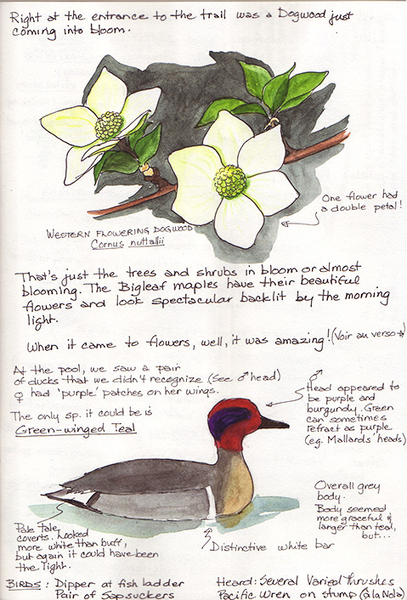 Right at the entrance to the trail was a Dogwood just
coming into bloom.
One flower had
a double petal!
Western Flowering Dogwood
Cornus nuttallii
That's just the trees and shrubs in bloom or almost
blooming. The Bigleaf maples have their beautiful
flowers and look spectacular backlit by the morning
light.
When it came to flowers, well, it was amazing! (Voir au verso →)
At the pool, we saw a pair
of ducks that we didn't recognize (See ♂ head)
♀ had 'purple' patches on her wings.
The only sp. it could be is
Green-winged Teal
♂
Head appeared to
be purple and
burgundy. Green
can sometimes
refract as purple
(eg. Mallards' heads)
Overall grey
body.
Body seemed
more graceful &
larger than teal,
but...
Pale
coverts. Looked
more white than buff,
but again it could have been
the light.
♂
Distinctive white bar
BIRDS: Dipper at fish ladder
Pair of Sapsuckers
Heard: Several Varied Thrushes
Pacific Wren on stump (à la Nola)